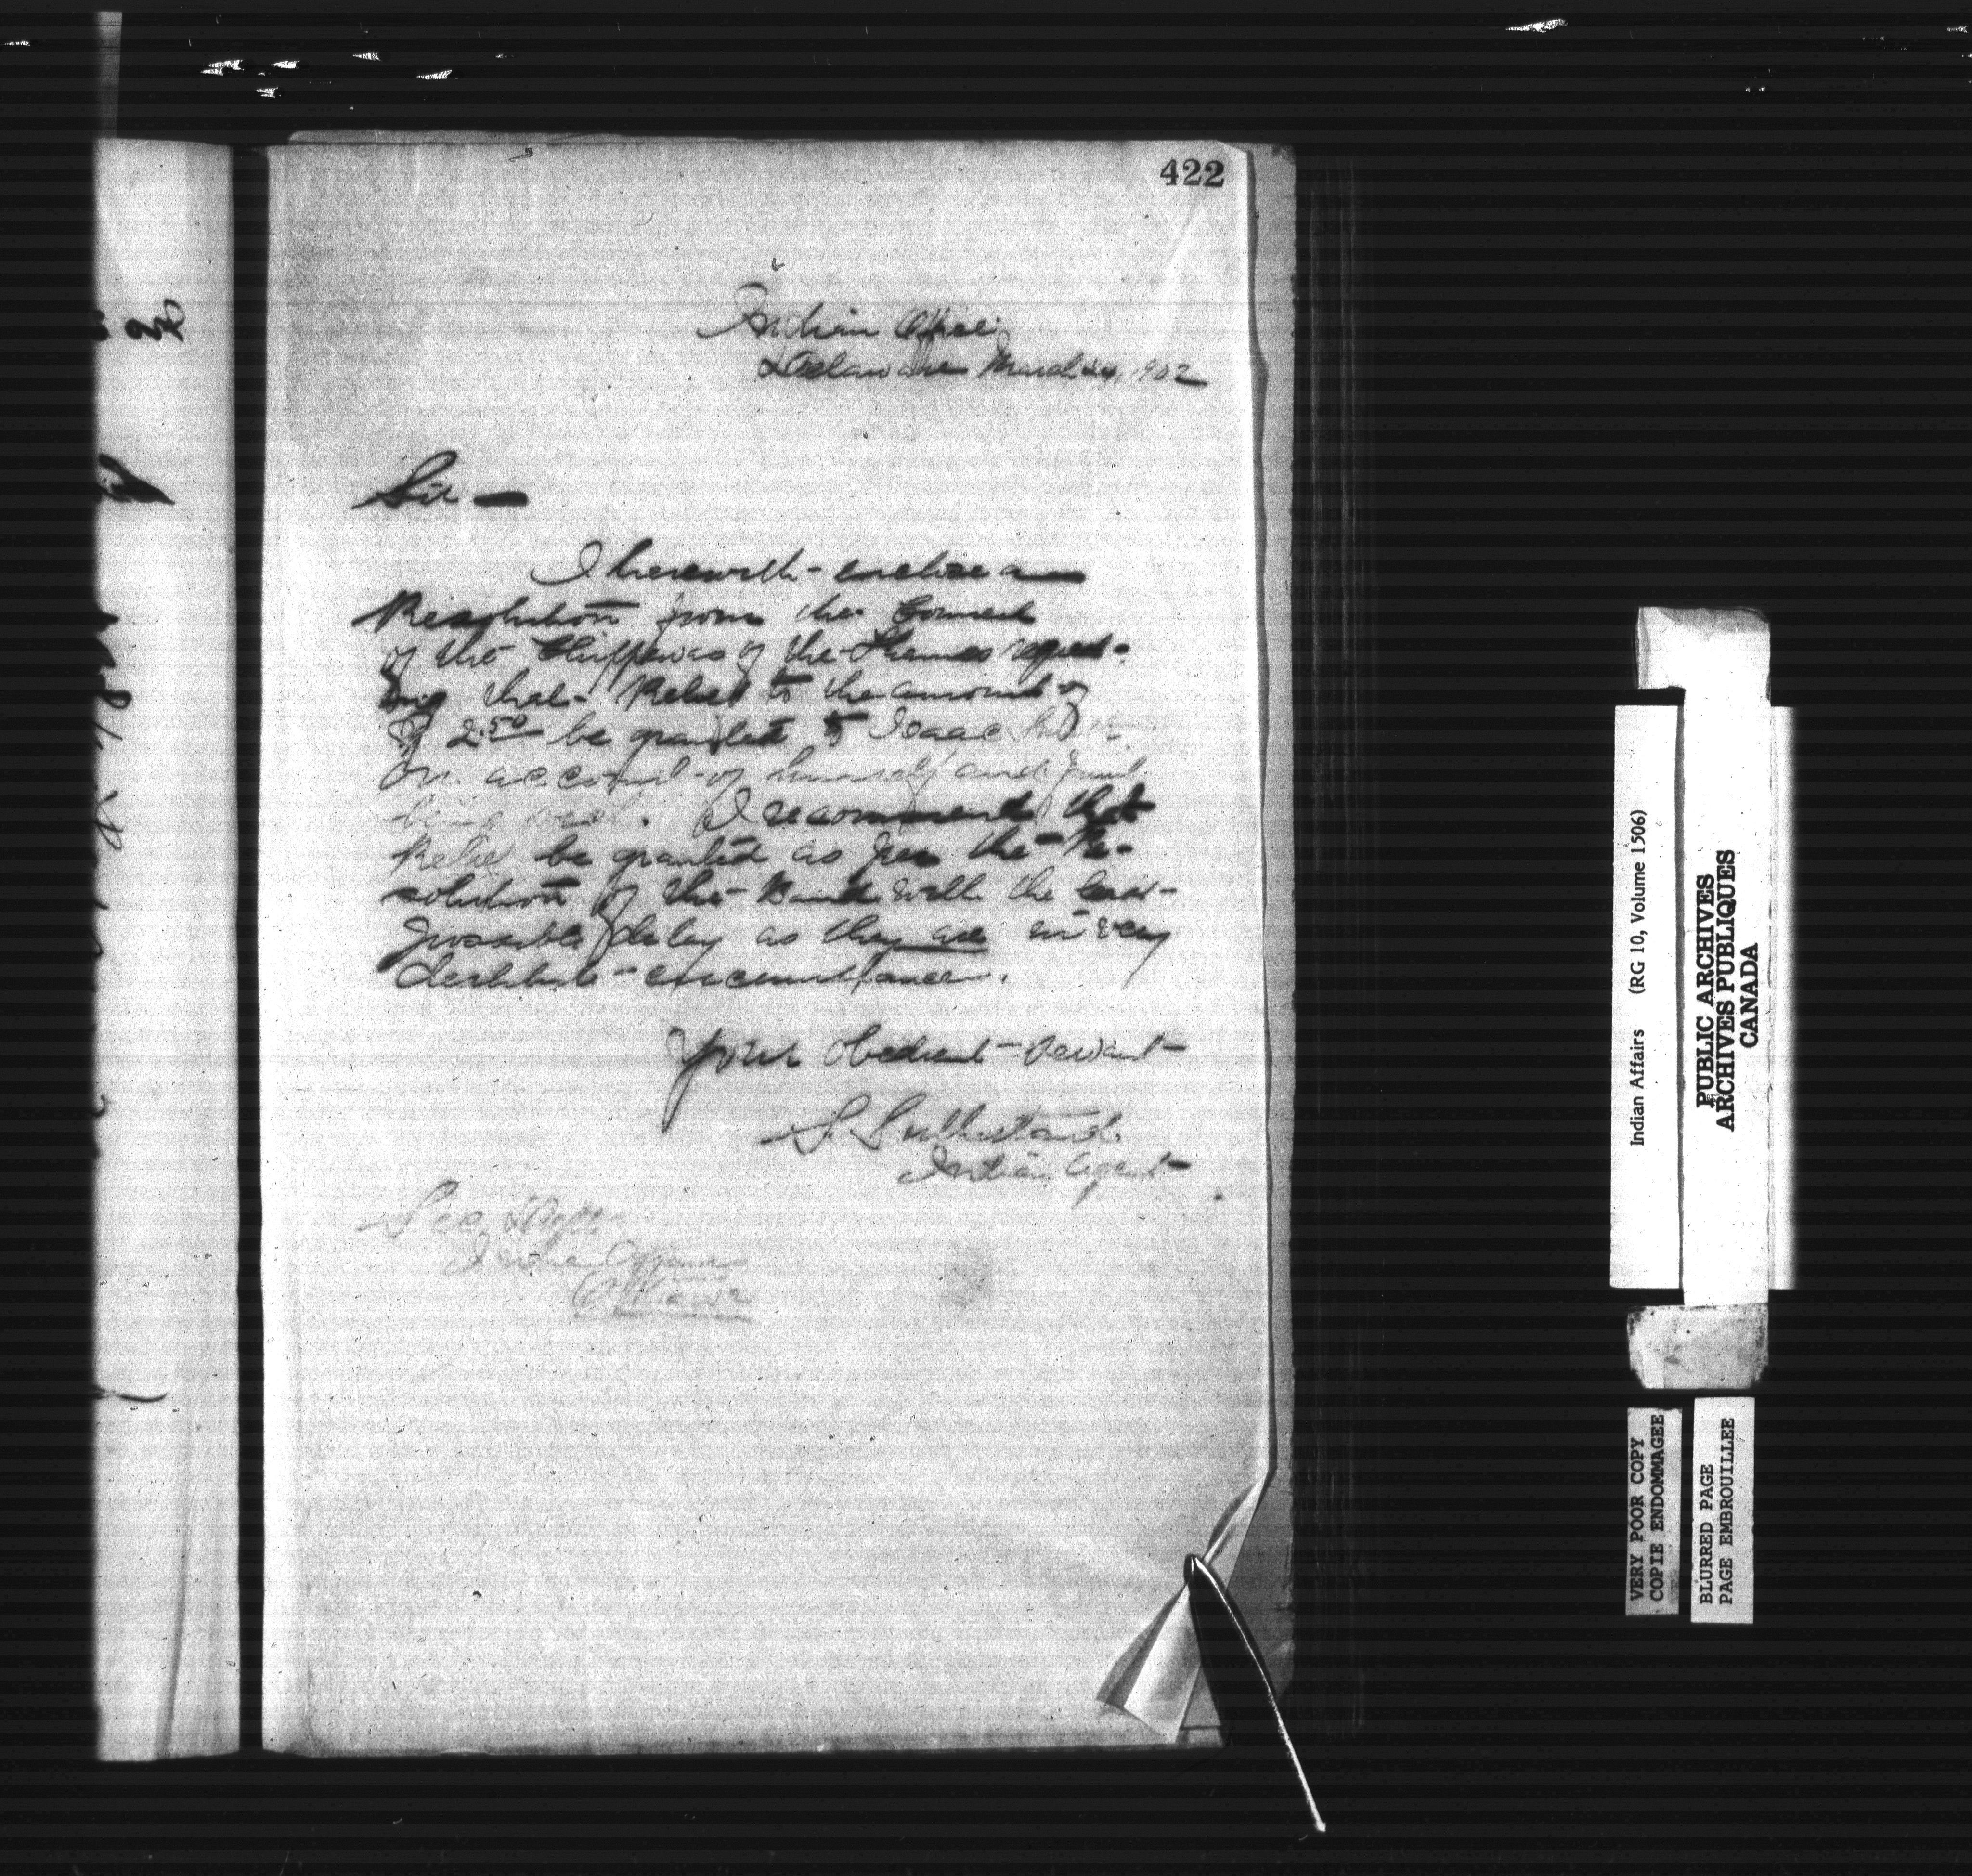 422
Indian Office
Delaware March 24, 1902
Sir —
I herewith enclose a
Resolution from the Council
of the Chippewas of the Thames request-
ing that Relief to the amount of
of 2.50 be granted to Isaac
on account of himself and
being . I recommend that
Relief be granted as per the Re-
solution of the Band with the least
possible delay as they are in very
destitute circumstances.
Your Obedient Servant
S. Sutherland
Indian Agent
Sec Dept
Indian Affairs
Ottawa
Indian Affairs (RG 10, Volume 1506)
PUBLIC ARCHIVES
ARCHIVES PUBLIQUES
CANADA
VERY POOR COPY
COPIE ENDOMMAGEE
BLURRED PAGE
PAGE EMBROUILLEE